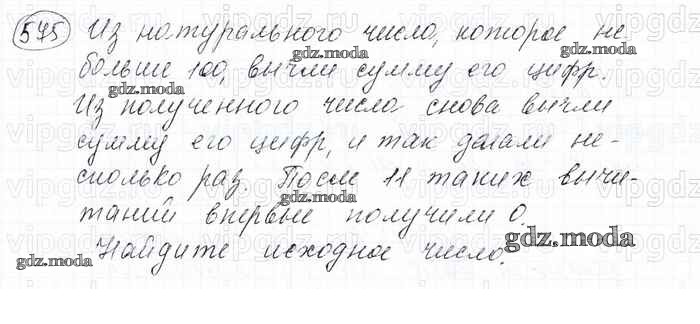 575 Из натурального число, которое не
больше 100, вычли сумму его цифр.
Из полученного числа снова вычли
сумму его цифр, и так делали не-
сколько раз. После 11 таких вычи-
таний впервые получили 0.
Найдите исходное число.
gdz.moda
gdz.moda
gdz.moda
gdz.moda
gdz.moda
gdz.moda
gdz.moda
gdz.moda